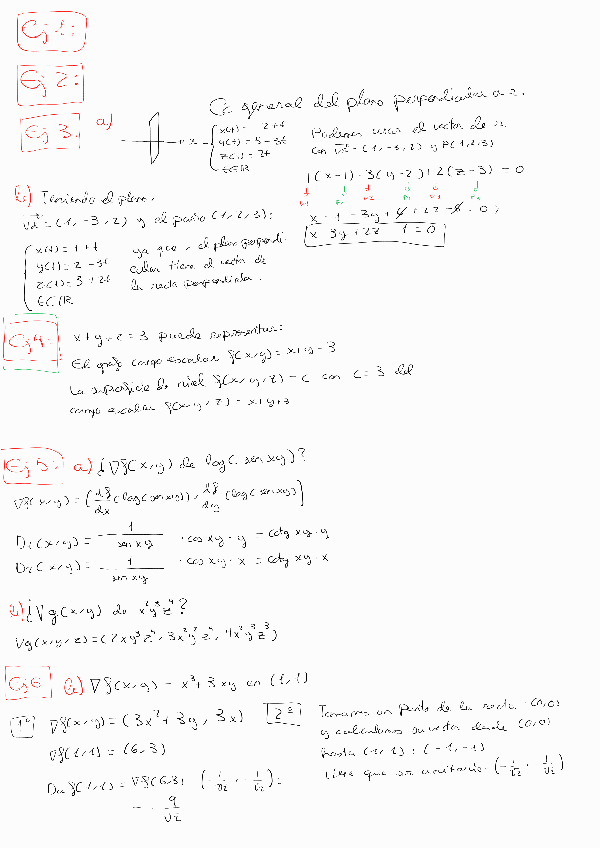 Ej 1:
Ej 2:
Ej 3. a)
Ec general del plano perpendicular a r.
x(t) = 2+t
y(t) = 5-3t
z(t) = 2t
t∈ℝ
Podemos usar el vector de r.
con = (1, -3, 2) y P(1,2,3)
1(x-1)-3(y-2)+2(z-3) = 0
x - 1 - 3y + 6 + 2z - 6 = 0;
x - 3y + 2z - 1 = 0
b) Teniendo el plano.
= (1, -3, 2) y el punto (1, 2, 3):
x(t) = 1 + t
y(t) = 2 - 3t
z(t) = 3 + 2t
t∈ℝ
ya que, el plano perpendi-
cular tiene el vector de
la recta perpendicular.
Ej 4:
x+y-z = 3 puede representar:
El grafo campo escalar f(x,y) = x+y-3
La superficie de nivel f(x,y,z) = c con c = 3 del
campo escalar f(x,y,z) = x+y+z
Ej 5: a) ¿∇f(x,y) de log(sen xy)?
∇f(x,y) = (df/dx (log(sen xy)), df/dy (log(sen xy))
D1(x,y) = 1/sen xy · cos xy · y = cotg xy · y
D2(x,y) = 1/sen xy · cos xy · x = cotg xy · x
b) ¿∇g(x,y) de x²y³z⁴?
∇g(x,y,z) = (2xy³z⁴, 3x²y²z⁴, 4x²y³z³)
Ej 6 b) ∇f(x,y) = x³+3xy en (1,1)
1º ∇f(x,y) = (3x²+3y, 3x)
∇f(1,1) = (6,3)
Duf(1,1) = ∇f(6,3) · (-1/√2, -1/√2) =
= -9/√2
2º Tomamos un punto de la recta: (0,0)
y calculamos su vector desde (0,0)
hasta (1,1): (-1,-1)
que ser unitario: (-1/√2, -1/√2)